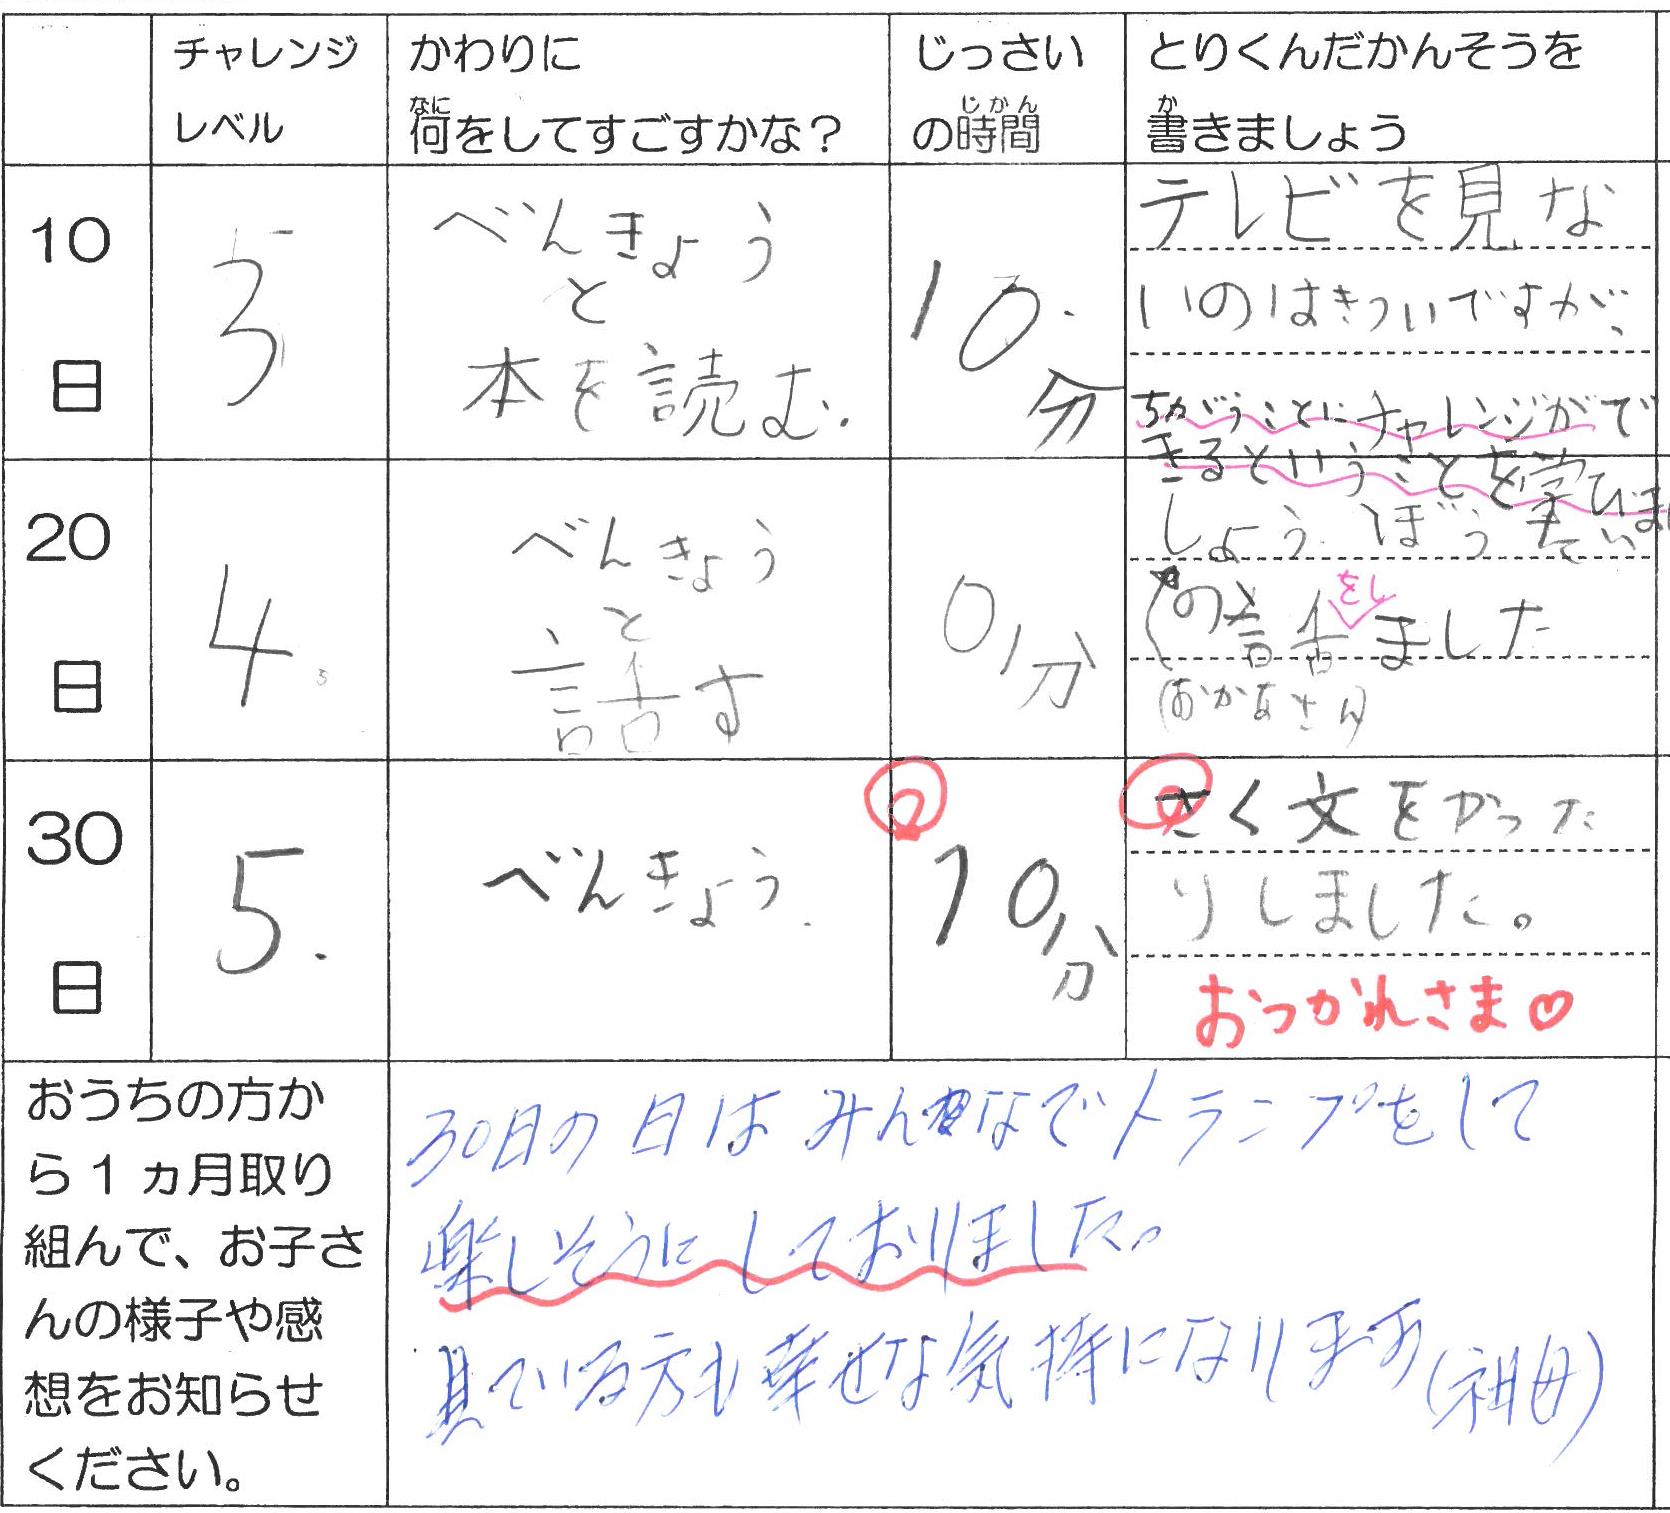 チャレンジ
レベル
かわりに
何をしてすごすかな？
なに
じっさい
の時間
じかん
とりくんだかんそうを
書きましょう
か
10
日
3
べんきょう
と
本を読む.
10.
分
テレビを見な
いのはきついですが、
ちがうことにチャレンジがで
きるということを学びまし
20
日
4
べんきょう
と
話す
0分
しょうぼう
の話ました
をし
(おかあさん)
30
日
5.
べんきょう.
10分
さく文をかった
りしました。
おつかれさま♡
おうちの方か
ら1ヵ月取り
組んで、お子さ
んの様子や感
想をお知らせ
ください。
30日の日はみんなでトランプをして
楽しそうにしておりました。
見ている方も幸せな気持になります(祖母)